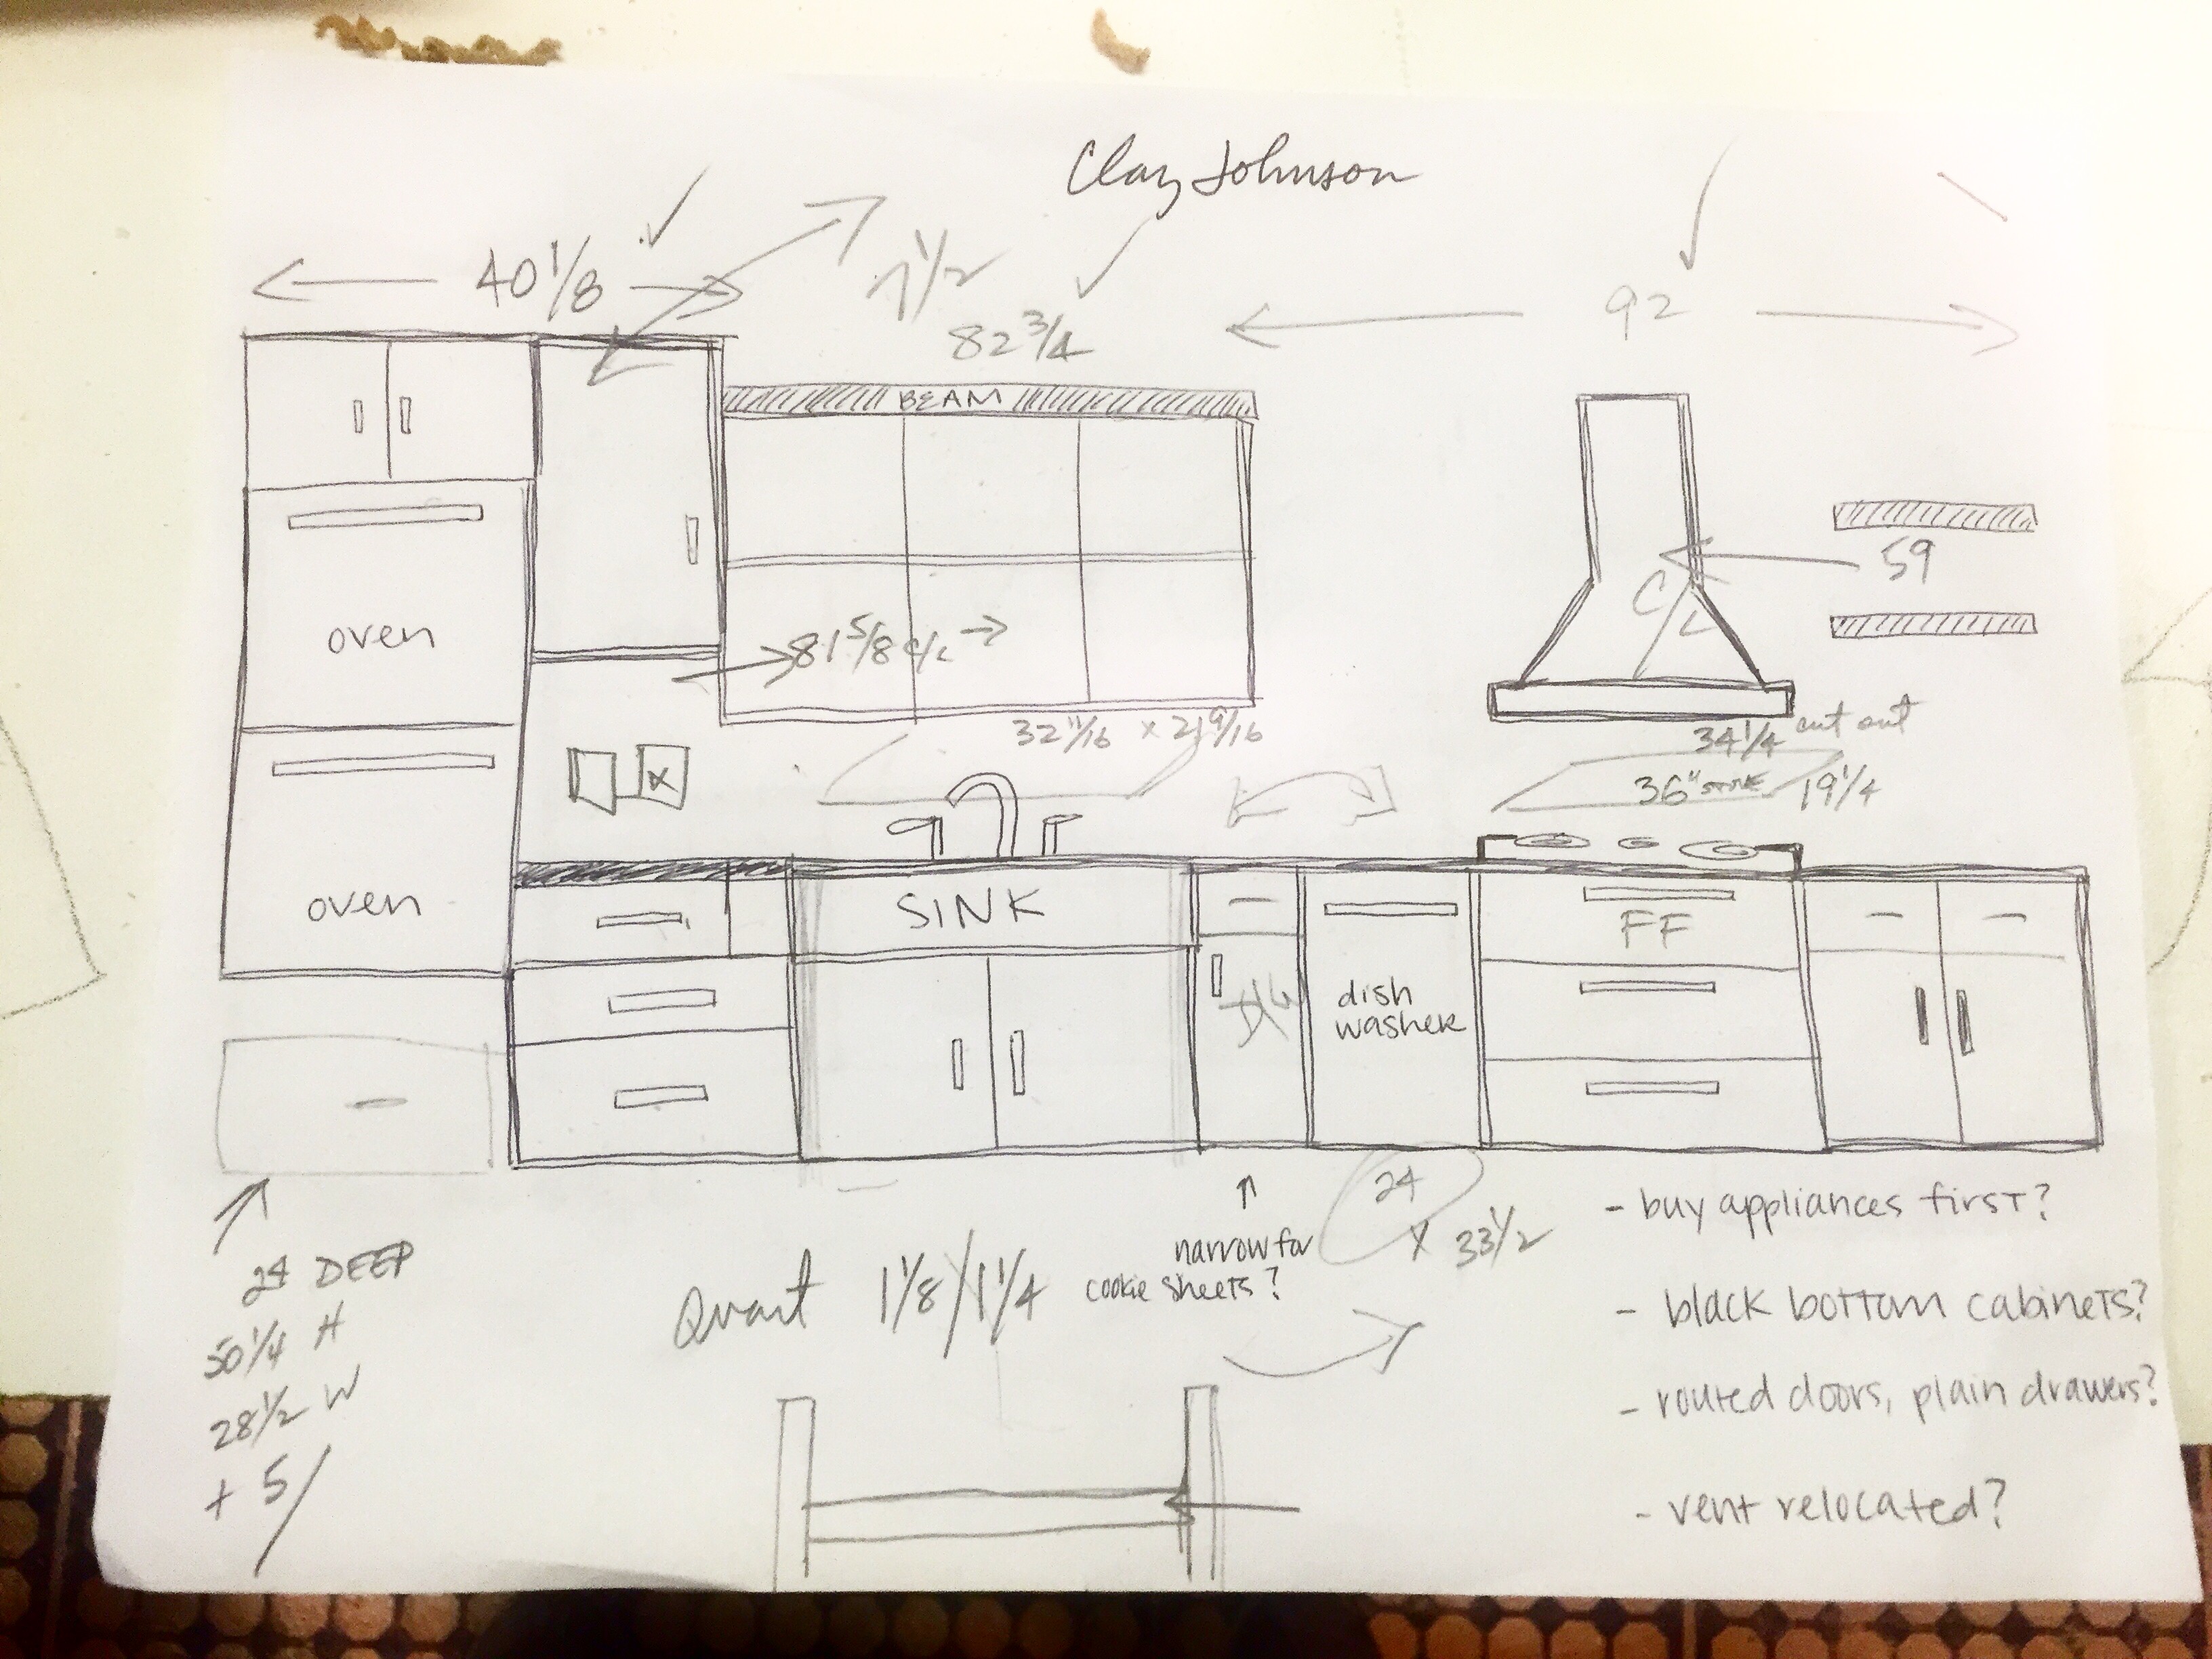 Clay Johnson
40 1/8
7 1/2
82 3/4
92
BEAM
59
C/L
oven
81 5/8 C/L
32 11/16 x 21 9/16
34 1/4 cut out
36" 19 1/4
X
oven
SINK
FF
D/W
dish
washer
24
x 33 1/2
narrow for
cookie sheets?
24 DEEP
50 1/4 H
28 1/2 W
+ 5/
Quart 1 1/8 / 1 1/4
- buy appliances first?
- black bottom cabinets?
- routed doors, plain drawers?
- vent relocated?